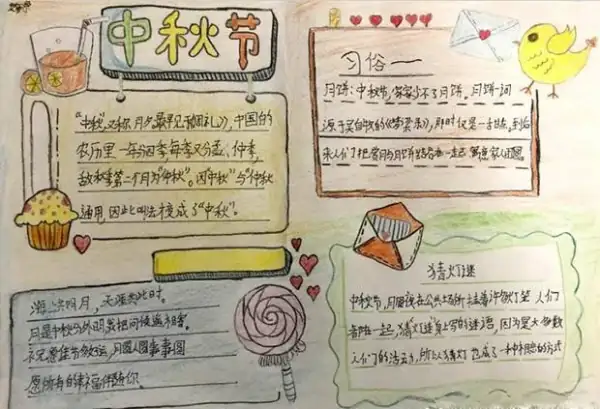 中秋节
"中秋"又称月夕最早见于《周礼》,中国的
农历里一年分四季每季又分孟、仲季,
故秋季第二个月为"仲秋"。因"中秋"与"仲秋
通用,因此叫法接成了"中秋"。
习俗一
月饼:中秋节,家家少不了月饼。月饼一词
源于吴自牧的《梦粱录》,那时仅是一
来人们才把赏月与月饼结合在一起 寓意家人团圆
海 明月,天涯共此时。
月是中秋分外明我把问候遥相寄。
月圆人圆事事圆
愿所有的幸福伴随你。
猜灯谜
中秋节,月圆夜在公共场所挂着许多灯笼 人们
都聚一起,猜灯笼身上写的谜语,因为是大多数
人们的活动,所以猜灯 也成了一种 的方式